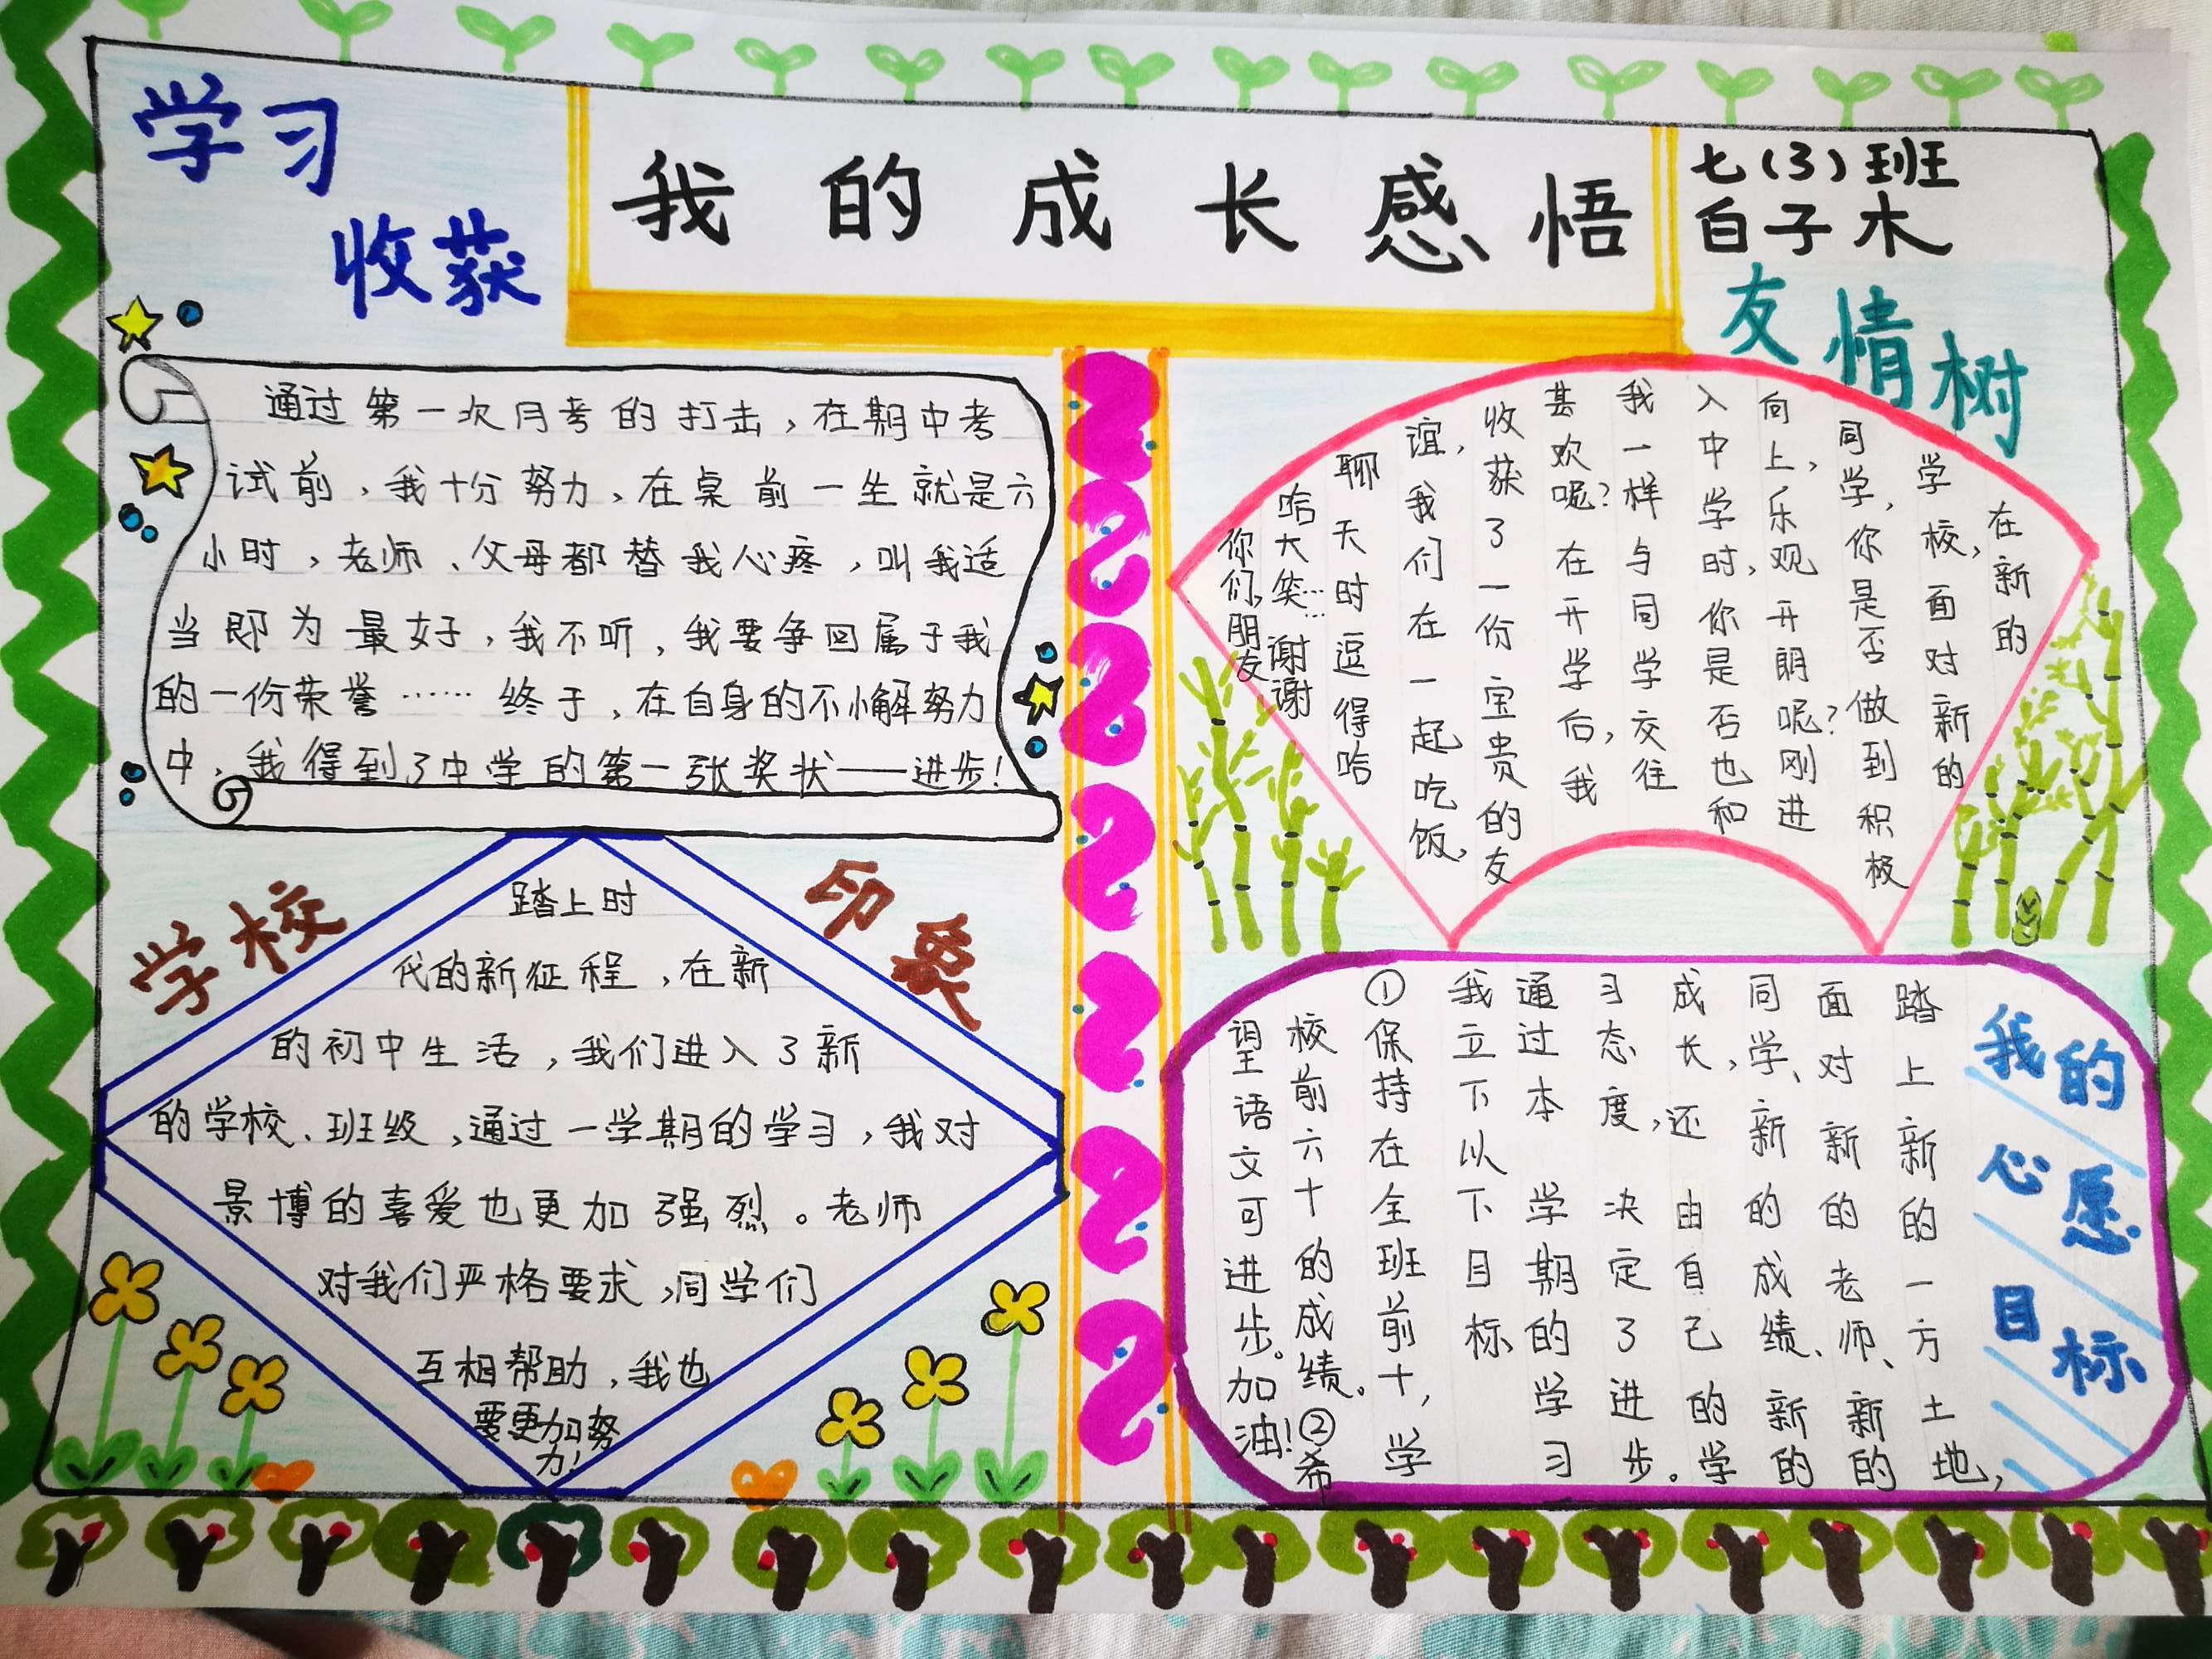 学习
收获
我的成长感悟
七(3)班
白子木
通过第一次月考的打击，在期中考
试前，我十分努力，在桌前一生就是六
小时，老师、父母都替我心疼，叫我适
当即为最好，我不听，我要争回属于我
的一份荣誉……终于，在自身的不懈努力
中，我得到了中学的第一张奖状——进步！
友情树
在新的
学校，面对新的
同学，你是否做到积极
向上，乐观开朗呢？刚进
入中学时，你是否也和
我一样与同学交往
甚欢呢？在开学后，我
收获了一份宝贵的友
谊，我们在一起吃饭，
聊天时逗得哈
哈大笑……谢谢
你们，朋友
学校印象
踏上时
代的新征程，在新
的初中生活，我们进入了新
的学校、班级，通过一学期的学习，我对
景博的喜爱也更加强烈。老师
对我们严格要求，同学们
互相帮助，我也
要更加努
力！
我的
心愿
目标
踏上新的一方土地，
面对新的老师、新的
同学、新的成绩、新的
成长，还由自己的学
习态度，决定了进步。
通过本学期的学习
我立下以下目标
①保持在全班前十，学
校前六十的成绩。②希
望语文可进步。加油！